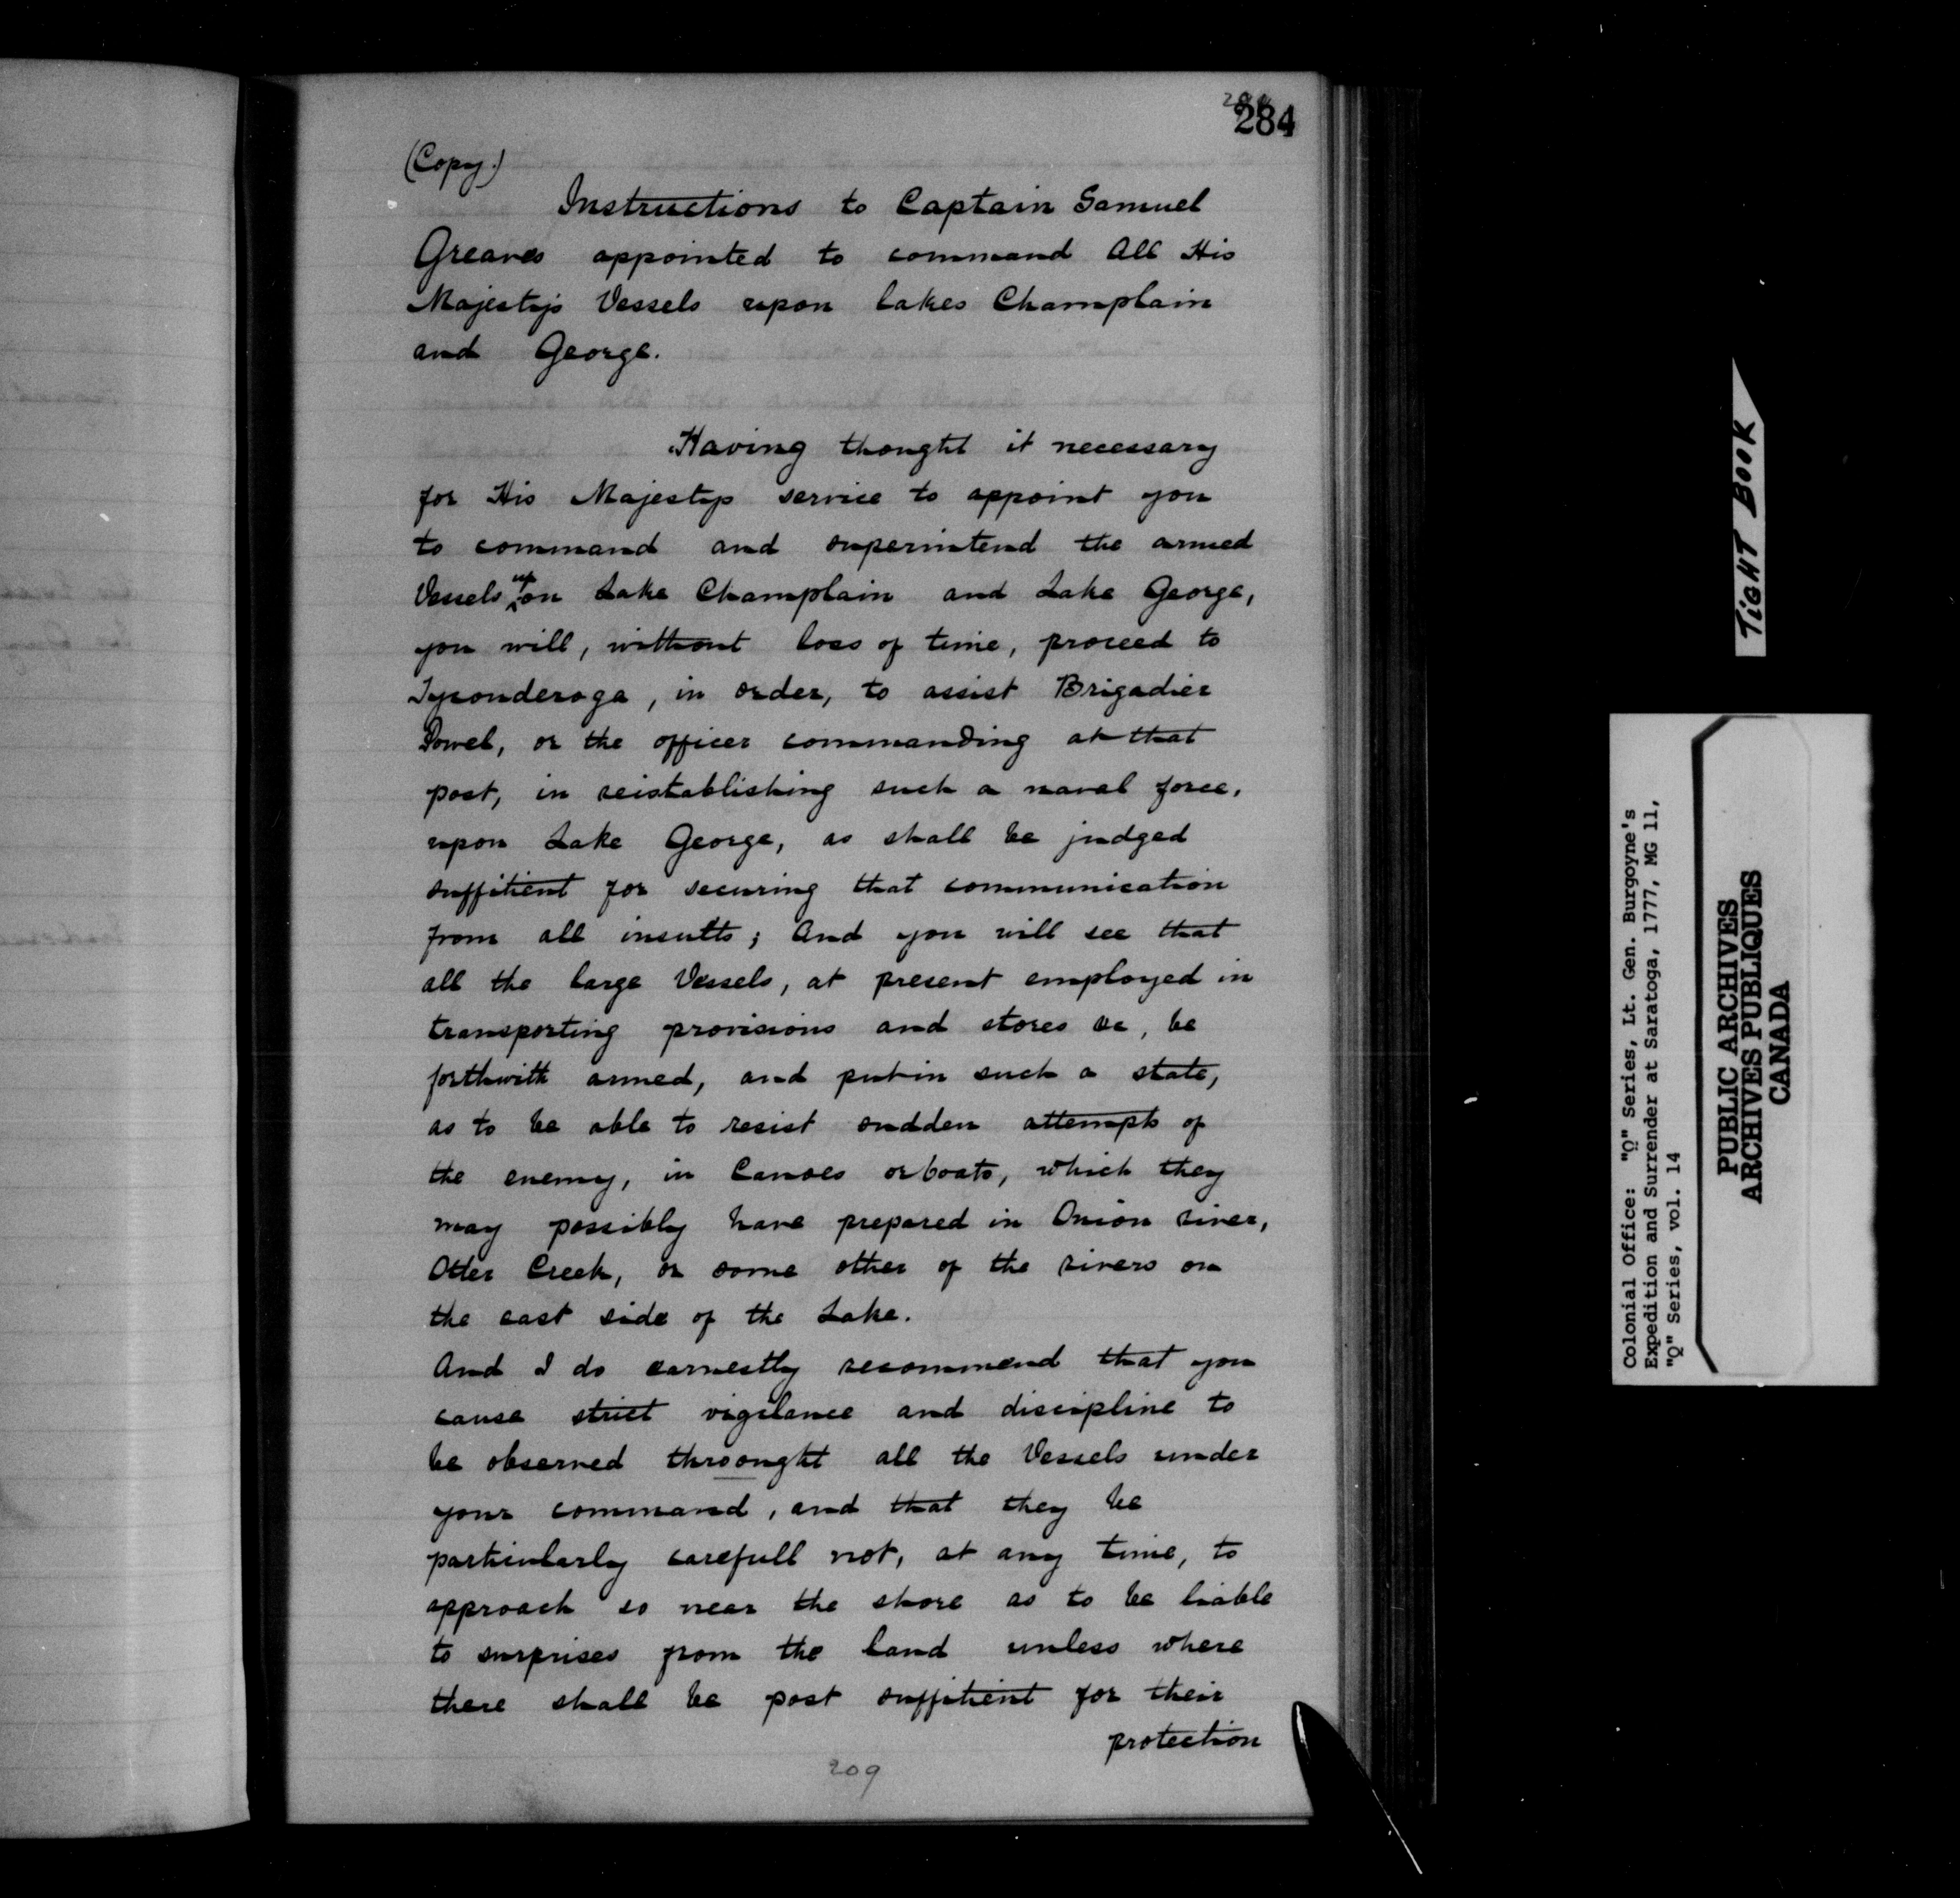 284
(Copy.)
Instructions to Captain Samuel
Greaves appointed to command All His
Majestys Vessels upon Lakes Champlain
and George.
Having thought it necessary
for His Majestys service to appoint you
to command and superintend the armed
Vessels upon Lake Champlain and Lake George,
you will, without loss of time, proceed to
Tyconderoga, in order, to assist Brigadier
Powel, or the officer commanding at that
post, in reistablishing such a naval force,
upon Lake George, as shall be judged
suffitient for securing that communication
from all insults; And you will see that
all the large Vessels, at present employed in
transporting provisions and stores &c, be
forthwith armed, and put in such a state,
as to be able to resist sudden attempts of
the enemy, in Canoes or boats, which they
may possibly have prepared in Onion river,
Otter Creek, or some other of the rivers on
the east side of the Lake.
And I do earnestly recommend that you
cause strict vigilance and discipline to
be observed throonght all the Vessels under
your command, and that they be
particularly carefull not, at any time, to
approach so near the shore as to be liable
to surprises from the land unless where
there shall be post suffitient for their
protection
209
TIGHT BOOK
Colonial Office: "Q" Series, Lt. Gen. Burgoyne's
Expedition and Surrender at Saratoga, 1777, MG 11,
"Q" Series, vol. 14
PUBLIC ARCHIVES
ARCHIVES PUBLIQUES
CANADA